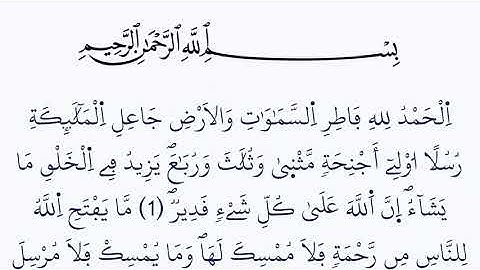 بِسْمِ اِ۬للَّهِ اِ۬لرَّحْمَٰنِ اِ۬لرَّحِيمِ
اِ۬لْحَمْدُ لِلهِ فَاطِرِ اِ۬لسَّمَٰوَٰتِ وَالَارْضِ جَاعِلِ اِ۬لْمَلَٰٓئِكَةِ
رُسُلًا ا۟وْلِےٓ أَجْنِحَةٖ مَّثْنۭيٰ وَثُلَٰثَ وَرُبَٰعَۖ يَزِيدُ فِے اِ۬لْخَلْقِ مَا
يَشَآءُۖ اِنَّ اَ۬للَّهَ عَلَىٰ كُلِّ شَےْءٖ قَدِيرٞۖ (1) مَّا يَفْتَحِ اِ۬للَّهُ
لِلنَّاسِ مِن رَّحْمَةٖ فَلَا مُمْسِكَ لَهَاۖ وَمَا يُمْسِكْ فَلَا مُرْسِلَ